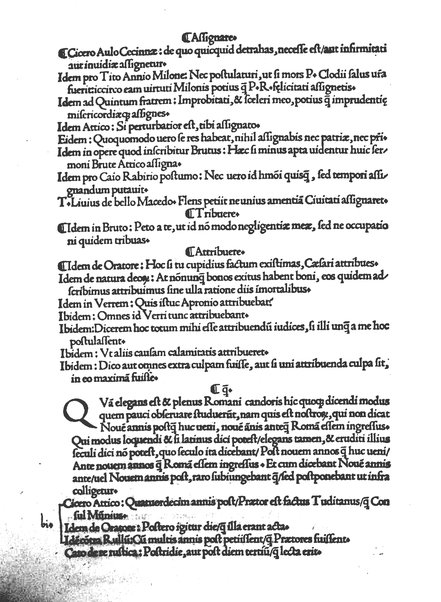 ¶Assignare•
¶Cicero Aulo Cecinnæ: de quo quicquid detrahas, necesse est/aut infirmitati
aut inuidiæ assignetur•
Idem pro Tito Annio Milone: Nec postulaturi, ut si mors P• Clodii salus ūra
fuerit: circo eam uirtuti Milonis potius q̄ P•R•felicitati assignetis•
Idem ad Quintum fratrem: Improbitati, & sceleri meo, potius q̄ imprudentiæ
misericordiæq; assignes•
Idem Attico: Si perturbatior est, tibi assignato•
Eidem: Quoquomodo uero se res habeat, nihil assignabis nec patriæ, nec p̄ri•
Idem in opere quod inscribitur Brutus: Hæc si minus apta uidentur huic ser=
moni Brute Attico assigna•
Idem pro Caio Rabirio postumo: Nec uero id hmōi quisq̄, sed tempori assi/
gnandum putauit•
T•Liuius de bello Macedo• Flens petiit ne unius amentiā Ciuitati assignaret•
¶Tribuere•
¶Idem in Bruto: Peto a te, ut id nō modo negligentiæ meæ, sed ne occupatio
ni quidem tribuas•
¶Attribuere•
¶Idem de Oratore: Hoc si tu cupidius factum existimas, Cæsari attribues•
Idem de natura deoȝ: At nōnunq̄ bonos exitus habent boni, eos quidem ad/
scribimus attribuimus sine ulla ratione diis īmortalibus•
Idem in Verrem: Quis istuc Apronio attribuebat?
Ibidem: Omnes id Verri tunc attribuebant•
Ibidem: Dicerem hoc totum mihi esse attribuendū iudices, si illi unq̄ a me hoc
postulassent•
Ibidem: Vt aliis causam calamitatis attribueret•
Ibidem: Dico aut omnes extra culpam fuisse, aut si uni attribuenda culpa sit,
in eo maximā fuisse•
¶ q̄•
QVā elegans est & plenus Romani candoris hic quoq; dicendi modus
quem pauci obseruare studuerūt, nam quis est nostroȝ, qui non dicat
Noué annis postq̄ huc ueni, noué ānis anteq̄ Romā essem ingressus•
Qui modus loquendi & si latinus dici potest/elegans tamen, & eruditi illius
seculi dici nō potest, quo seculo ita dicebant/ Post nouem annos q̄ huc ueni/
Ante nouem annos q̄ Romā essem ingressus • Et cum dicebant Nouē annis
ante/uel Nouem annis post, raro subiungebant q̄/sed postponebant ut infra
colligetur•
Cicero Attico: Quatuordecim annis post/Prætor est factus Tuditanus/q̄ Con
sul Mūnius•
Idem de Oratore: Postero igitur die/q̄ illa erant acta•
Cū multis annis post petiissent/q̄ Prætores fuissent•
Cato de re rustica: Postridie, aut post diem tertiū/q̄ lecta erit•